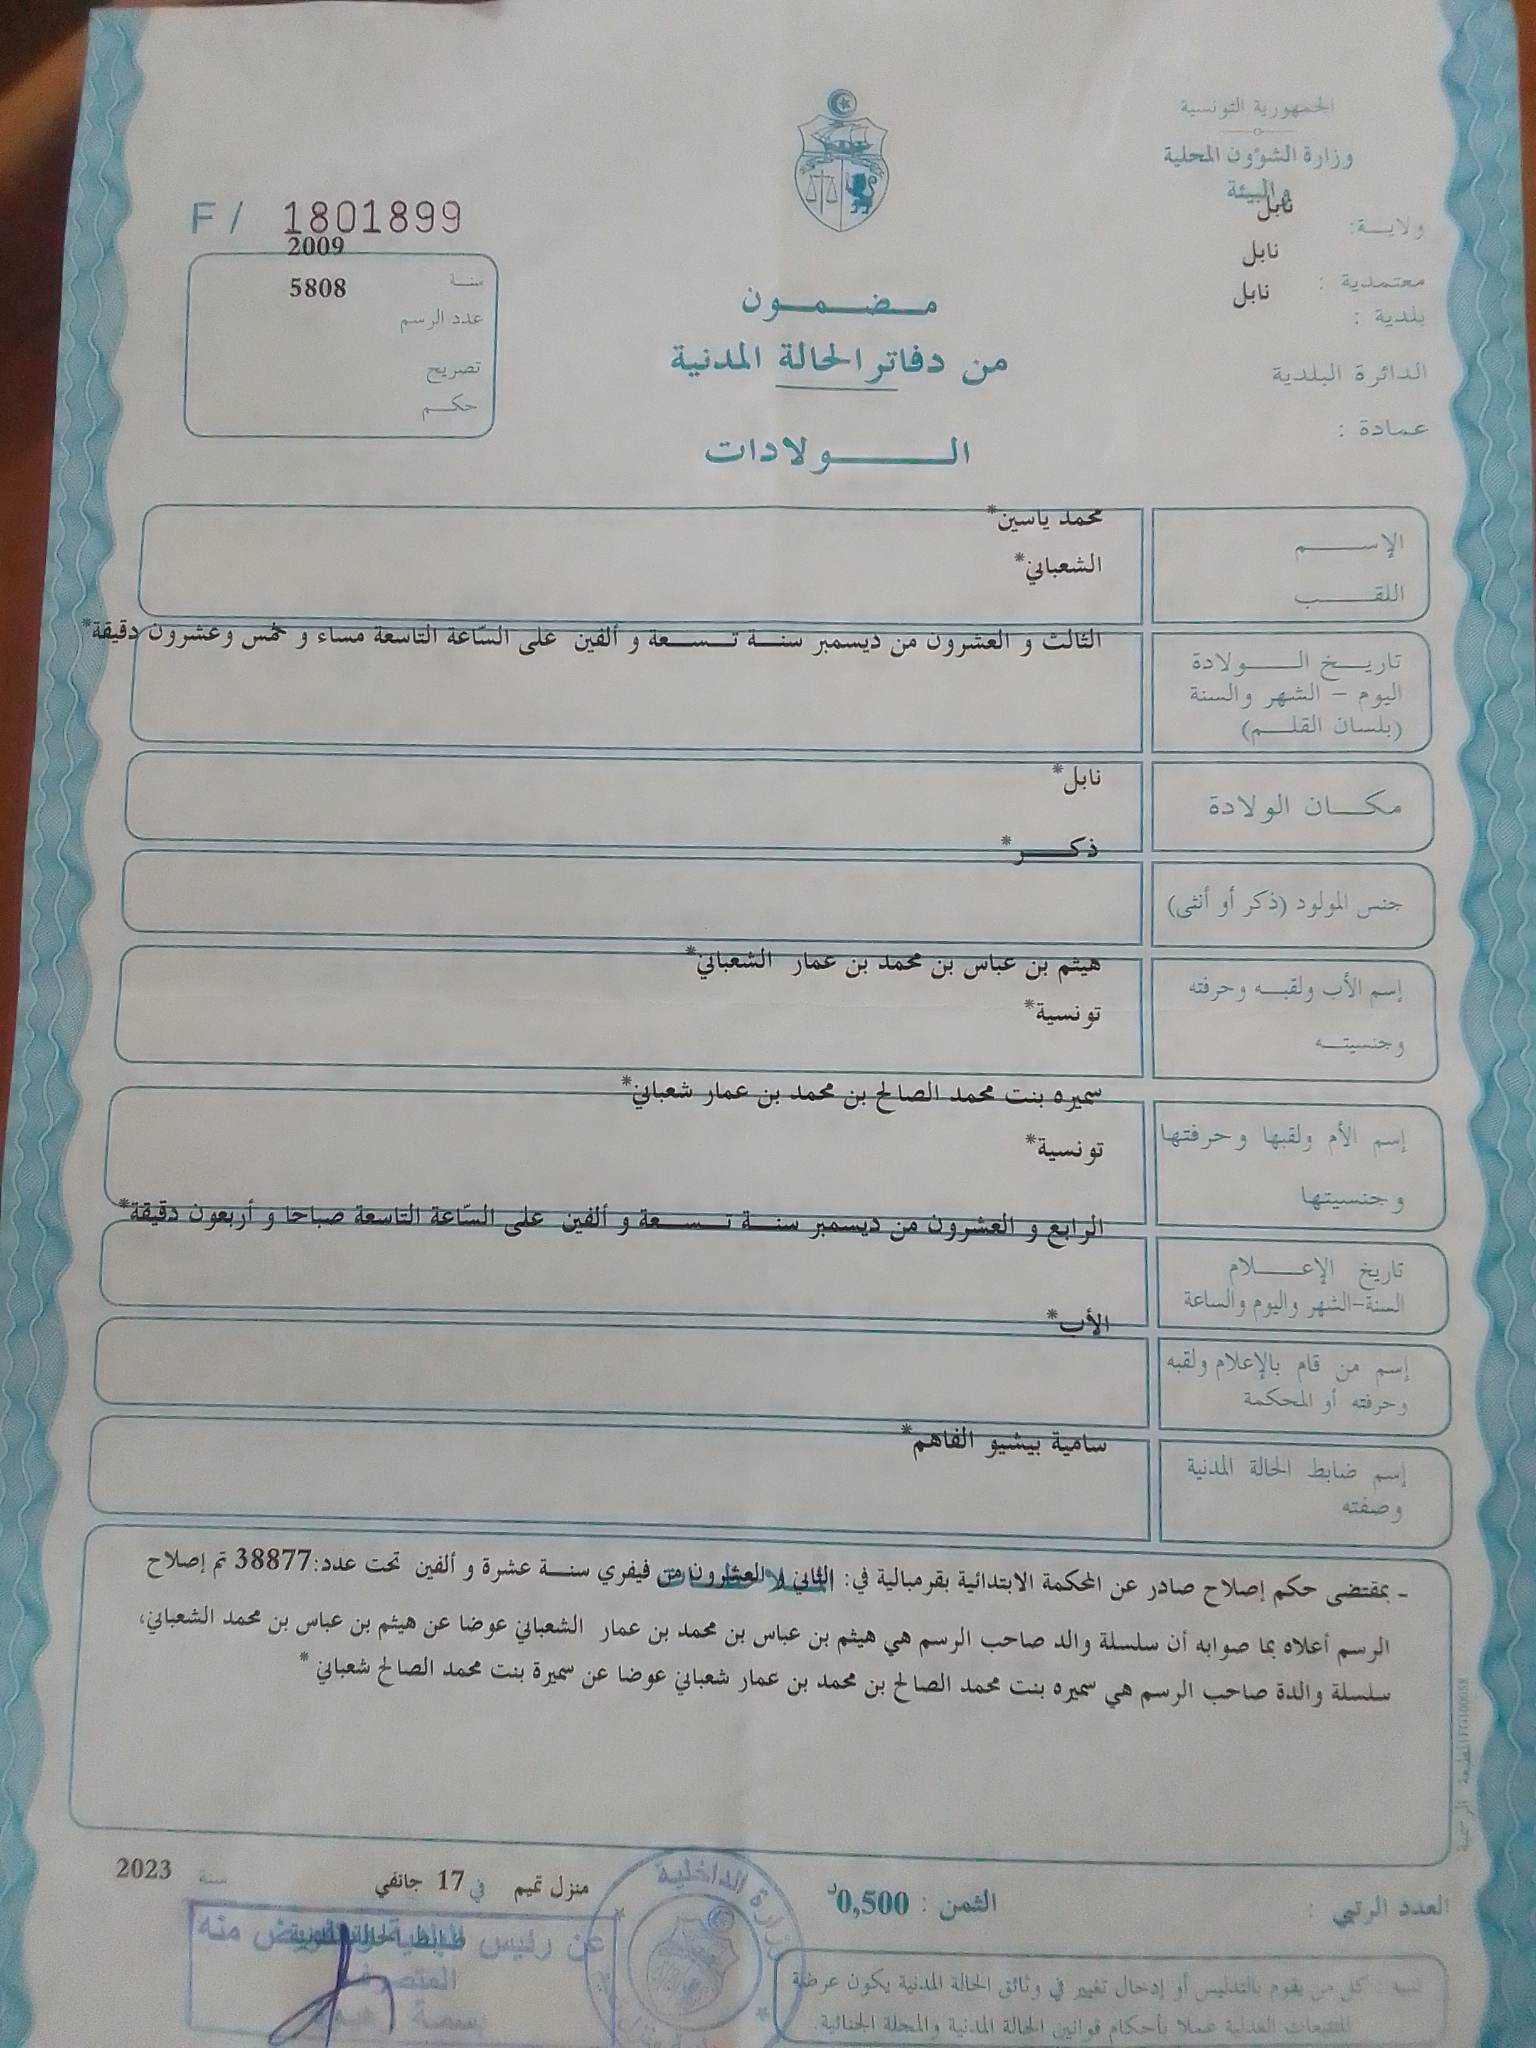 الجمهورية التونسية
وزارة الشؤون المحلية
والبيئة
ولاية: نابل
معتمدية : نابل
بلدية : نابل
الدائرة البلدية
عمادة :
F / 1801899
سنة 2009
عدد الرسم 5808
تصريح
حكم
مضمون
من دفاتر الحالة المدنية
الولادات
الإسم محمد ياسين*
اللقب الشعباني*
تاريخ الولادة
اليوم - الشهر والسنة
(بلسان القلم)
الثالث و العشرون من ديسمبر سنة تسعة و ألفين على السّاعة التاسعة مساء و خمس وعشرون دقيقة*
مكان الولادة نابل*
جنس المولود (ذكر أو أنثى) ذكر*
إسم الأب ولقبه وحرفته
وجنسيته
هيثم بن عباس بن محمد بن عمار الشعباني*
تونسية*
إسم الأم ولقبها وحرفتها
وجنسيتها
سميره بنت محمد الصالح بن محمد بن عمار شعباني*
تونسية*
تاريخ الإعلام
السنة-الشهر واليوم والساعة
الرابع و العشرون من ديسمبر سنة تسعة و ألفين على السّاعة التاسعة صباحا و أربعون دقيقة*
إسم من قام بالإعلام ولقبه
وحرفته أو المحكمة
الأب*
إسم ضابط الحالة المدنية
وصفته
سامية بيشيو الفاهم*
- بمقتضى حكم إصلاح صادر عن المحكمة الابتدائية بقرمبالية في: الثاني و العشرون من فيفري سنة عشرة و ألفين تحت عدد:38877 تم إصلاح
الرسم أعلاه بما صوابه أن سلسلة والد صاحب الرسم هي هيثم بن عباس بن محمد بن عمار الشعباني عوضا عن هيثم بن عباس بن محمد الشعباني،
سلسلة والدة صاحب الرسم هي سميره بنت محمد الصالح بن محمد بن عمار شعباني عوضا عن سميرة بنت محمد الصالح شعباني *
العدد الرتبي :
الثمن : 0,500د
منزل تميم في 17 جانفي سنة 2023
وزارة الداخلية
ضابط الحالة المدنية
عن رئيس
منه
المتصرف
تنبيه : كل من يقوم بالتدليس أو إدخال تغيير في وثائق الحالة المدنية يكون عرضة
للتتبعات العدلية عملا بأحكام قوانين الحالة المدنية والمجلة الجنائية.
المطبعة الرسمية